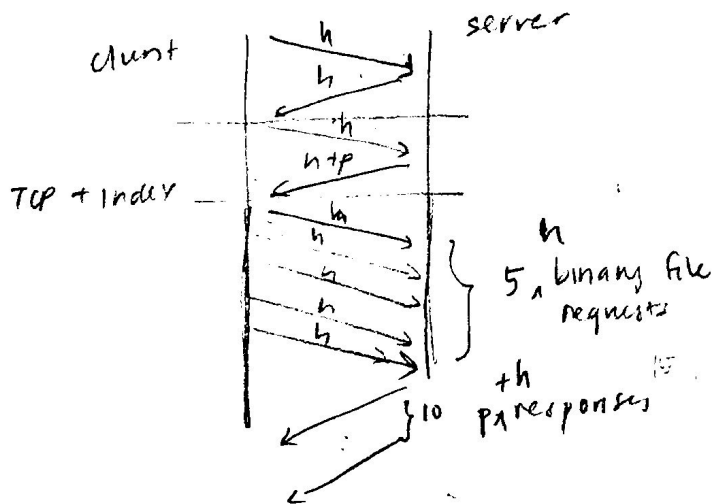 client
server
h
h
h
h+p
TCP + Index
h
h
h
h
h
h
5 ^ binary file
requests
+h
10
p ^ responses